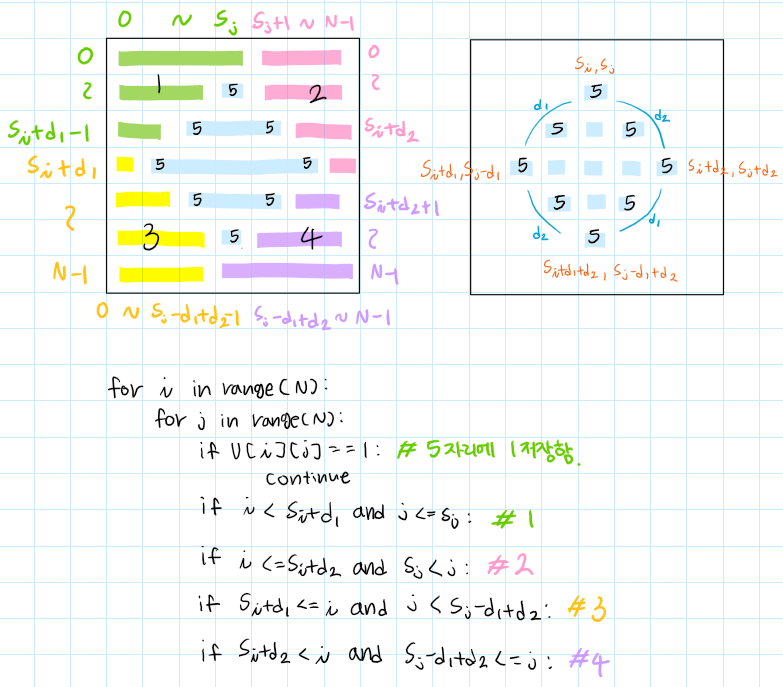 0 ~ Sj Sj+1 ~ N-1
0 0
~ 1 5 2 ~
Si+d1-1 5 5 Si+d2
Si+d1 5 5
5 5 Si+d2+1
~ 3 5 4 ~
N-1 N-1
0 ~ Sj-d1+d2-1 Sj-d1+d2 ~ N-1
Si, Sj
5
d1 d2
5 5
Si+d1, Sj-d1 5 5 Si+d2, Sj+d2
5 5
d2 d1
5
Si+d1+d2, Sj-d1+d2
for i in range(N):
for j in range(N):
if V[i][j] == 1: # 5자리에 1저장함.
continue
if i < Si+d1 and j <= Sj: # 1
if i <= Si+d2 and Sj < j: # 2
if Si+d1 <= i and j < Sj-d1+d2: # 3
if Si+d2 < i and Sj-d1+d2 <= j: # 4